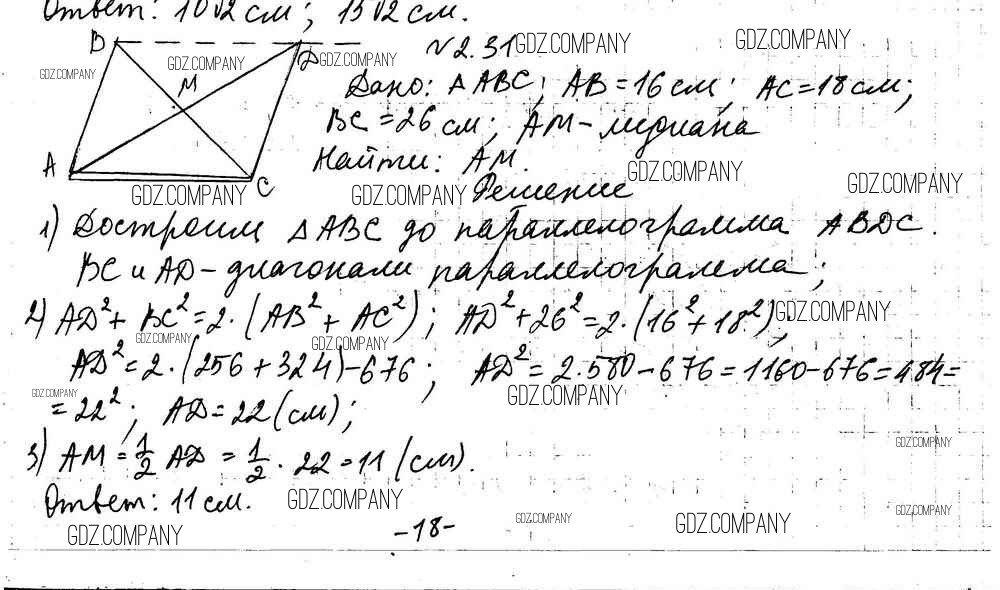 Ответ: 10√2 см; 15√2 см.
B D №2.31 GDZ.COMPANY GDZ.COMPANY
GDZ.COMPANY GDZ.COMPANY GDZ.COMPANY
M Дано: △ABC; AB=16 см; AC=18 см;
BC=26 см; AM-медиана
A Найти: AM. GDZ.COMPANY
GDZ.COMPANY C GDZ.COMPANY Решение GDZ.COMPANY
1) Достроим △ABC до параллелограмма ABDC.
BC и AD-диагонали параллелограмма;
2) AD²+BC²=2·(AB²+AC²); AD²+26²=2·(16²+18²); GDZ.COMPANY
GDZ.COMPANY GDZ.COMPANY
AD²=2·(256+324)-676; AD²=2·580-676=1160-676=484=
GDZ.COMPANY GDZ.COMPANY
=22²; AD=22(см);
GDZ.COMPANY
3) AM=1/2 AD=1/2·22=11(см).
Ответ: 11 см. GDZ.COMPANY GDZ.COMPANY
GDZ.COMPANY -18- GDZ.COMPANY GDZ.COMPANY